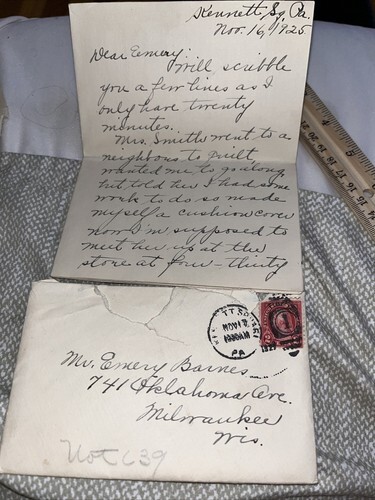 Kennett Sq. Pa.
Nov. 16, 1925
Dear Emery:
Will scribble
you a few lines as I
only have twenty
minutes.
Mrs. Smith went to a
neighbors to quilt
wanted me to go along
but told her I had some
work to do so made
myself a cushion cover
now I'm supposed to
meet her up at the
store at four-thirty
NOV 17
PA
Mr. Emery Barnes
741 Oklahoma Ave.
Milwaukee
Wis.